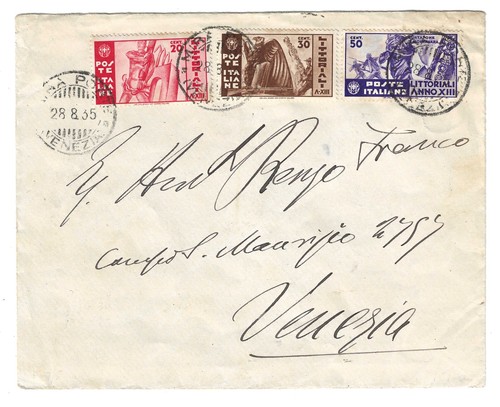 CENT. 20
POSTE ITALIANE
A·XIII
CENT. 30
POSTE ITALIANE
LITTORIALI
A·XIII
CENT. 50
POSTE ITALIANE
LITTORIALI
ANNO XIII
28 8 35
VENEZIA
Franco
Renzo
Campo S. Maurizio 2757
Venezia